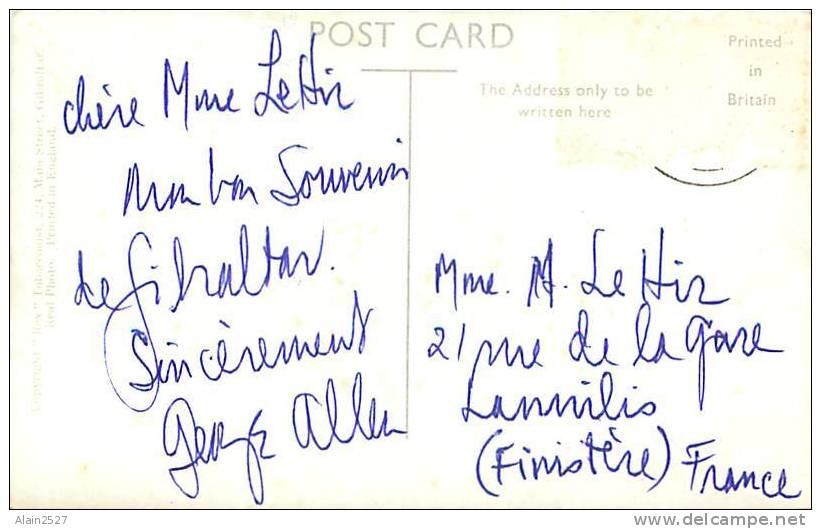 POST CARD
Printed
in
Britain
The Address only to be
written here
Copyright "Rex" Tobacconist, 224, Main Street, Gibraltar.
Real Photo. Printed in England.
chère Mme Le Hir
mon bon Souvenir
de Gibraltar.
Sincèrement
George Allen
Mme. M. Le Hir
21 rue de la Gare
Lannilis
(Finistère) France
Alain2527
delcampe.net